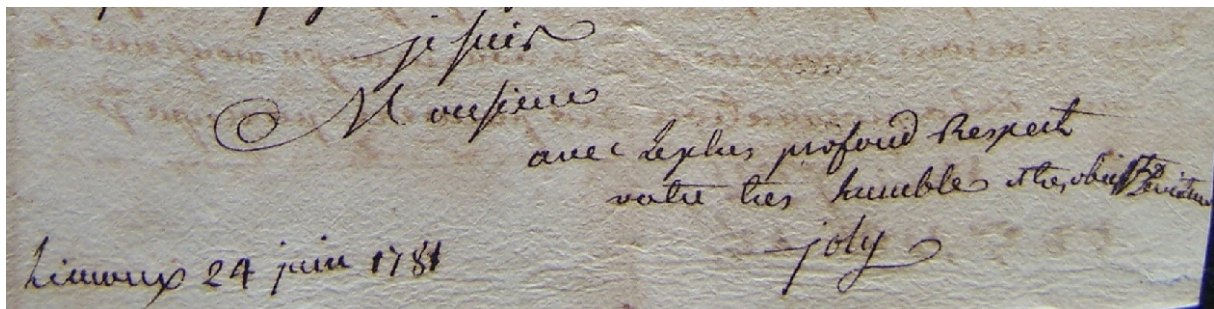 je suis
Monsieur
avec le plus profond Respect
votre tres humble et tres obeisst Serviteur
joly
Limoux 24 juin 1781